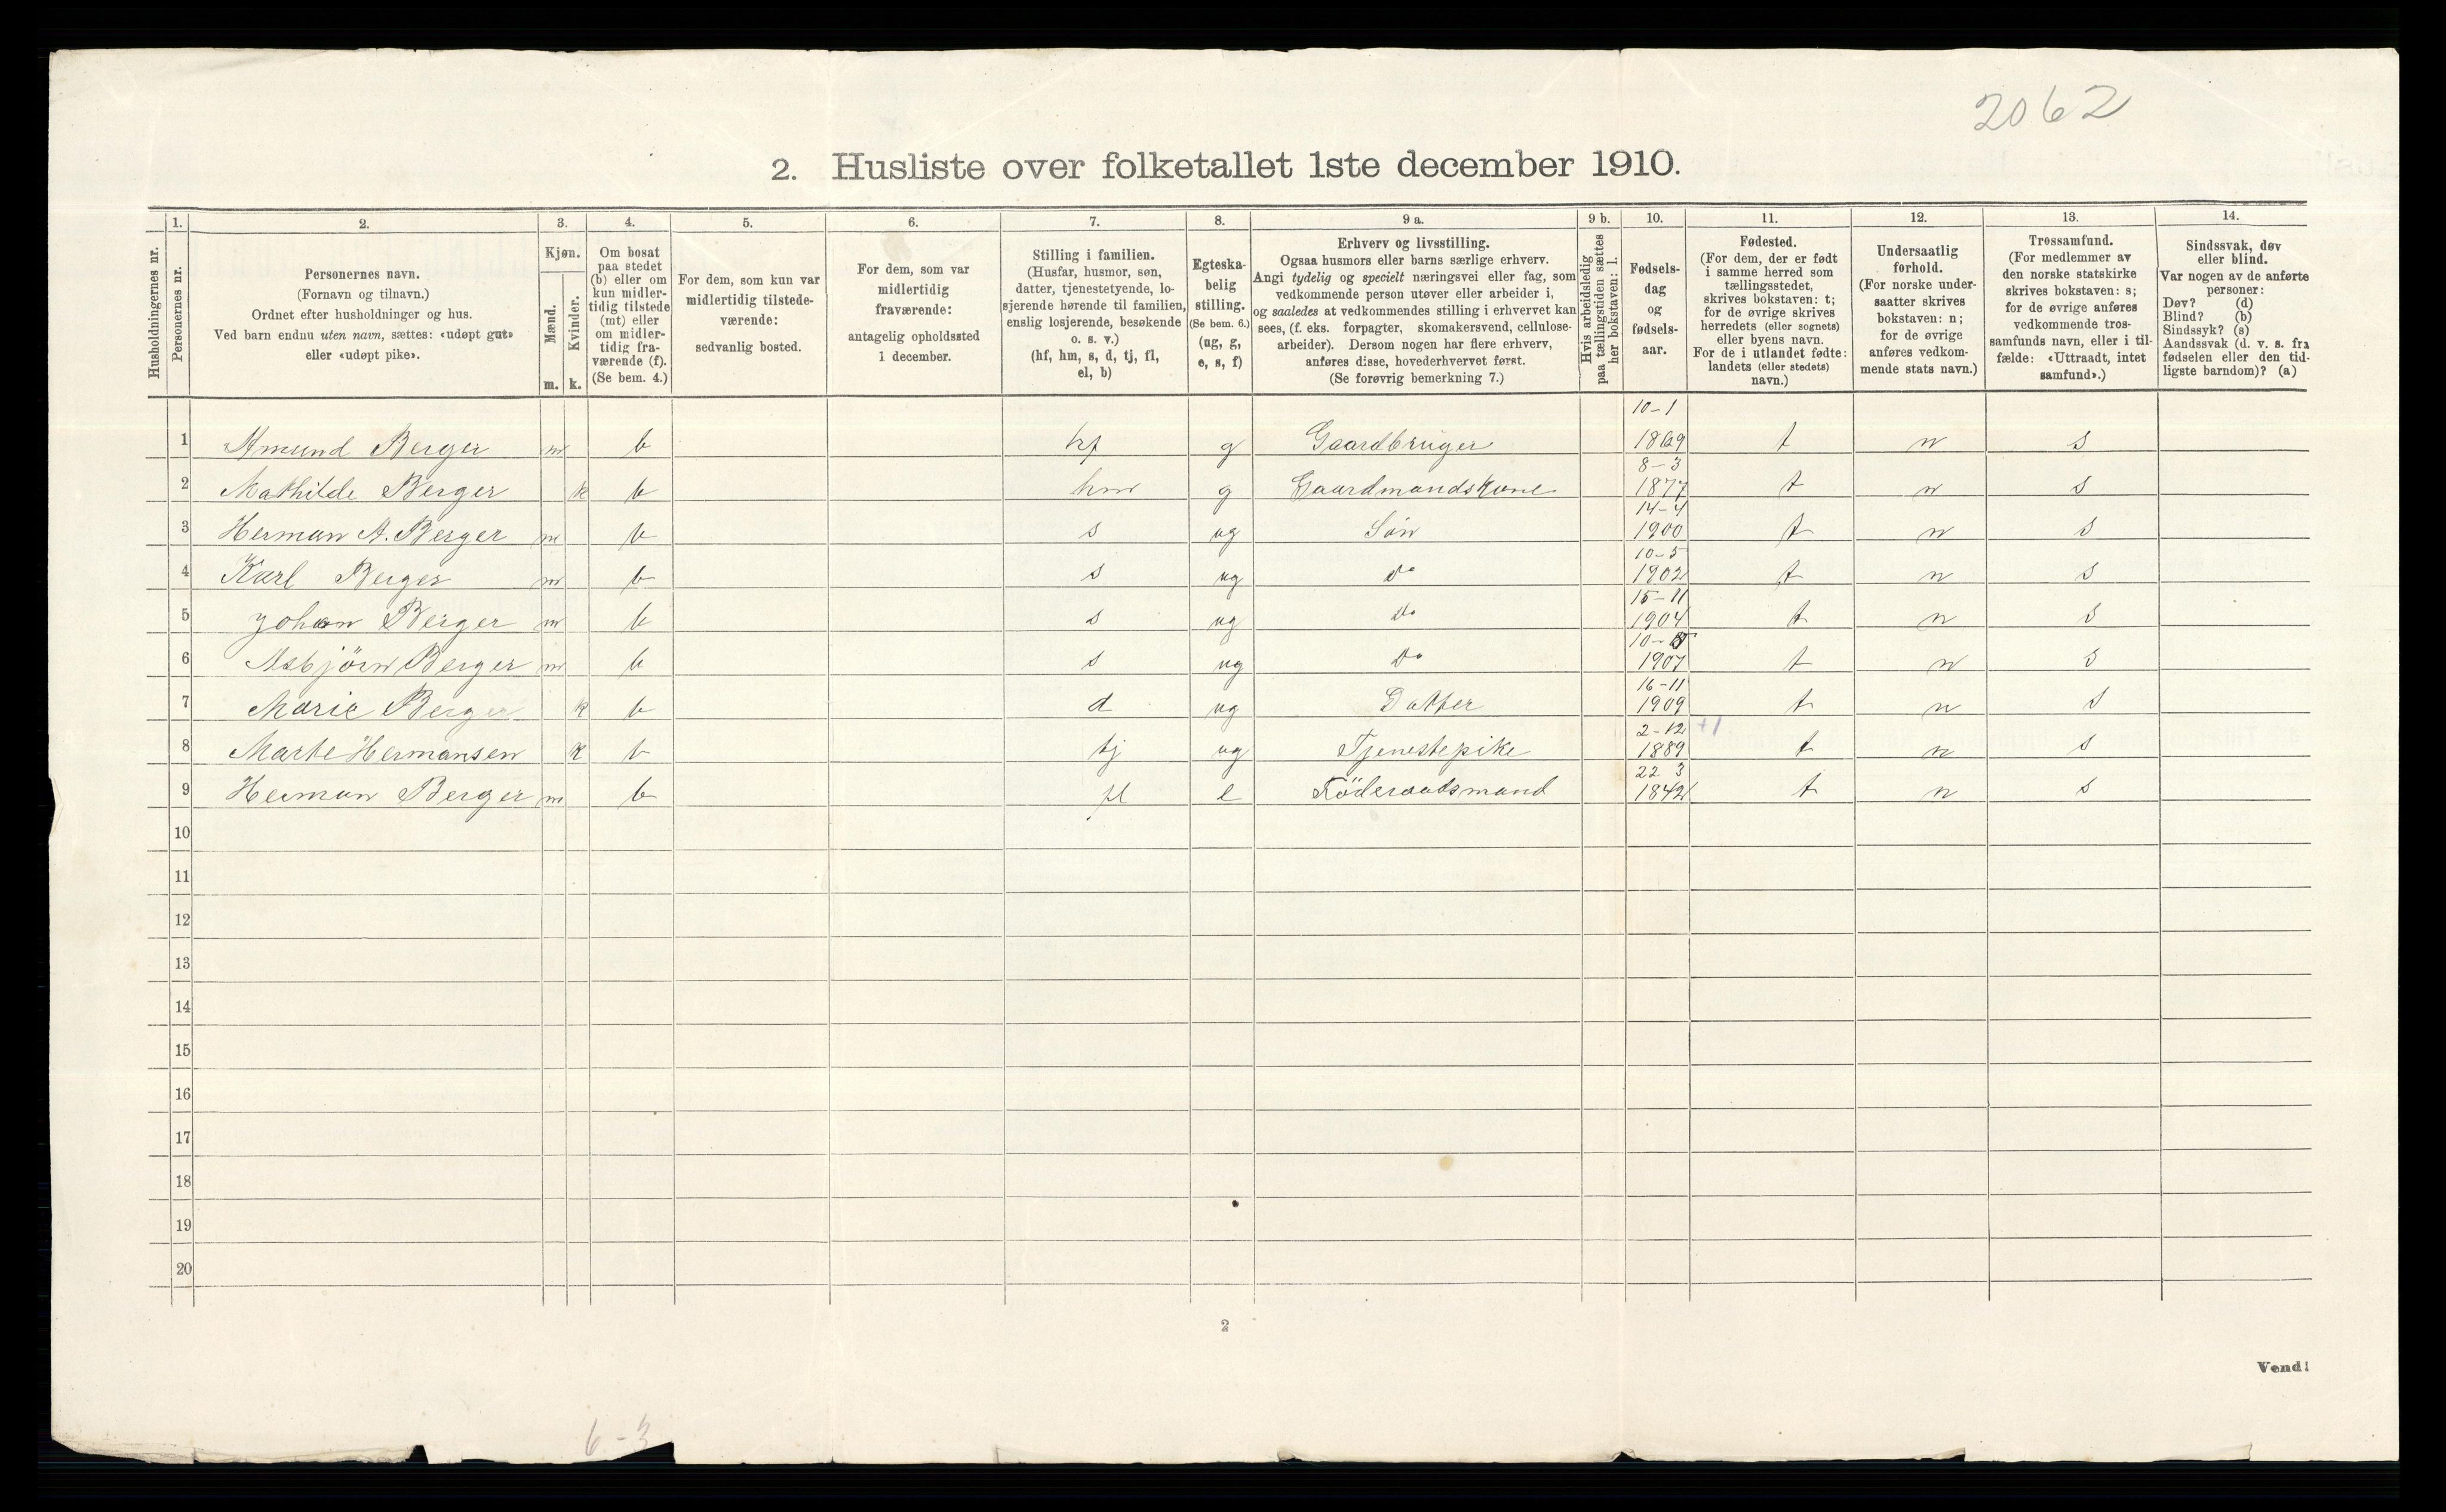 2062
2. Husliste over folketallet 1ste december 1910.
Husholdningernes nr.
1.
Personernes nr.
2.
Personernes navn.
(Fornavn og tilnavn.)
Ordnet efter husholdninger og hus.
Ved barn endnu uten navn, sættes: «udøpt gut»
eller «udøpt pike».
3.
Kjøn.
Mænd.
Kvinder.
m. k.
4.
Om bosat
paa stedet
(b) eller om
kun midler-
tidig tilstede
(mt) eller
om midler-
tidig fra-
værende (f).
(Se bem. 4.)
5.
For dem, som kun var
midlertidig tilstede-
værende:
sedvanlig bosted.
6.
For dem, som var
midlertidig
fraværende:
antagelig opholdssted
1 december.
7.
Stilling i familien.
(Husfar, husmor, søn,
datter, tjenestetyende, lo-
sjerende hørende til familien,
enslig losjerende, besøkende
o. s. v.)
(hf, hm, s, d, tj, fl,
el, b)
8.
Egteska-
belig
stilling.
(Se bem. 6.)
(ug, g,
e, s, f)
9 a.
Erhverv og livsstilling.
Ogsaa husmors eller barns særlige erhverv.
Angi tydelig og specielt næringsvei eller fag, som
vedkommende person utøver eller arbeider i,
og saaledes at vedkommendes stilling i erhvervet kan
sees, (f. eks. forpagter, skomakersvend, cellulose-
arbeider). Dersom nogen har flere erhverv,
anføres disse, hovederhvervet først.
(Se forøvrig bemerkning 7.)
9 b.
Hvis arbeidsledig
paa tællingstiden sættes
her bokstaven: l.
10.
Fødsels-
dag
og
fødsels-
aar.
11.
Fødested.
(For dem, der er født
i samme herred som
tællingsstedet,
skrives bokstaven: t;
for de øvrige skrives
herredets (eller sognets)
eller byens navn.
For de i utlandet fødte:
landets (eller stedets)
navn.)
12.
Undersaatlig
forhold.
(For norske under-
saatter skrives
bokstaven: n;
for de øvrige
anføres vedkom-
mende stats navn.)
13.
Trossamfund.
(For medlemmer av
den norske statskirke
skrives bokstaven: s;
for de øvrige anføres
vedkommende tros-
samfunds navn, eller i til-
fælde: «Uttraadt, intet
samfund».)
14.
Sindssvak, døv
eller blind.
Var nogen av de anførte
personer:
Døv? (d)
Blind? (b)
Sindssyk? (s)
Aandssvak (d. v. s. fra
fødselen eller den tid-
ligste barndom)? (a)
1 Amund Berger m b hf g Gaardbruger 10-1 1869 t n s
2 Mathilde Berger k b hm g Gaardmandskone 8-3 1877 t n s
3 Herman A. Berger m b s ug Søn 14-4 1900 t n s
4 Karl Berger m b s ug do 10-5 1902 t n s
5 Johan Berger m b s ug do 15-11 1904 t n s
6 Asbjörn Berger m b s ug do 1907 t n s
7 Marie Berger k b d ug Datter 16-11 1909 t n s
8 Marte Hermansen k b tj ug Tjenestepike 2-12 +1 1889 t n s
9 Herman Berger m b fl e Föderaadsmand 22 3 1842 t n s
10
11
12
13
14
15
16
17
18
19
20
2
Vend!
6-3